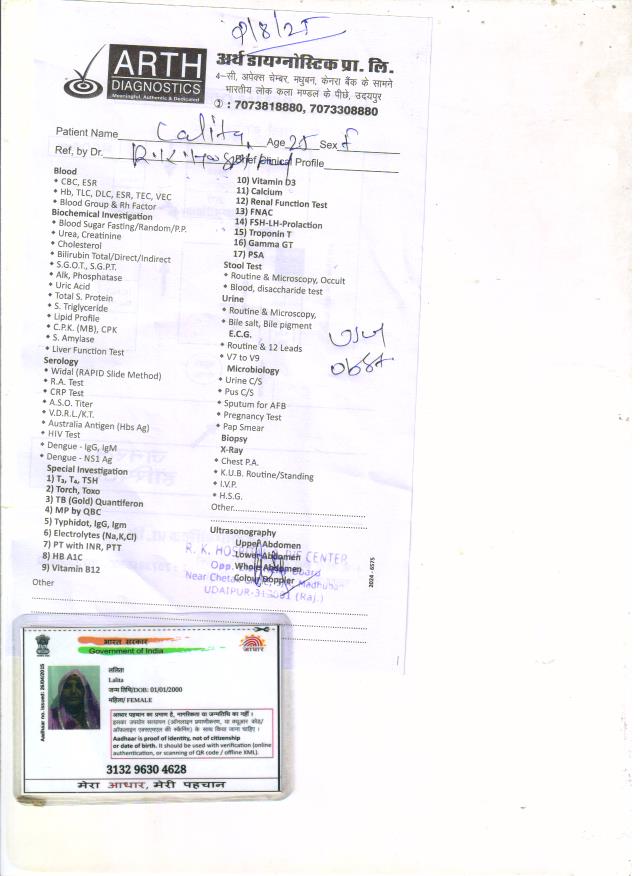 9/8/25
ARTH
DIAGNOSTICS
Meaningful, Authentic & Dedicated
अर्थ डायग्नोस्टिक प्रा. लि.
4–सी, अपेक्स चेम्बर, मधुबन, केनरा बैंक के सामने
भारतीय लोक कला मण्डल के पीछे, उदयपुर
: 7073818880, 7073308880
Patient Name Lalita Age 25 Sex F
Ref, by Dr. R.K. Hospital Brief Clinical Profile
Blood
CBC, ESR
Hb, TLC, DLC, ESR, TEC, VEC
Blood Group & Rh Factor
Biochemical Investigation
Blood Sugar Fasting/Random/P.P.
Urea, Creatinine
Cholesterol
Bilirubin Total/Direct/Indirect
S.G.O.T., S.G.P.T.
Alk, Phosphatase
Uric Acid
Total S. Protein
S. Triglyceride
Lipid Profile
C.P.K. (MB), CPK
S. Amylase
Liver Function Test
Serology
Widal (RAPID Slide Method)
R.A. Test
CRP Test
A.S.O. Titer
V.D.R.L./K.T.
Australia Antigen (Hbs Ag)
HIV Test
Dengue - IgG, IgM
Dengue - NS1 Ag
Special Investigation
1) T₃, T₄, TSH
2) Torch, Toxo
3) TB (Gold) Quantiferon
4) MP by QBC
5) Typhidot, IgG, Igm
6) Electrolytes (Na,K,Cl)
7) PT with INR, PTT
8) HB A1C
9) Vitamin B12
Other
10) Vitamin D3
11) Calcium
12) Renal Function Test
13) FNAC
14) FSH-LH-Prolaction
15) Troponin T
16) Gamma GT
17) PSA
Stool Test
Routine & Microscopy, Occult
Blood, disaccharide test
Urine
Routine & Microscopy,
Bile salt, Bile pigment
E.C.G.
Routine & 12 Leads
V7 to V9
Microbiology
Urine C/S
Pus C/S
Sputum for AFB
Pregnancy Test
Pap Smear
Biopsy
X-Ray
Chest P.A.
K.U.B. Routine/Standing
I.V.P.
H.S.G.
Other
USG
Obst
Ultrasonography
Upper Abdomen
Lower Abdomen
Whole Abdomen
Colour Doppler
Near Chetak
Madhuban
UDAIPUR-313001 (Raj.)
2024 - 6575
भारत सरकार
Government of India
आधार
Aadhaar no. issued: 26/04/2015
ललिता
Lalita
जन्म तिथि/DOB: 01/01/2000
महिला/ FEMALE
आधार पहचान का प्रमाण है, नागरिकता या जन्मतिथि का नहीं ।
इसका उपयोग सत्यापन (ऑनलाइन प्रमाणीकरण, या क्यूआर कोड/
ऑफलाइन एक्सएमएल की स्कैनिंग) के साथ किया जाना चाहिए ।
Aadhaar is proof of identity, not of citizenship
or date of birth. It should be used with verification (online
authentication, or scanning of QR code / offline XML).
3132 9630 4628
मेरा आधार, मेरी पहचान